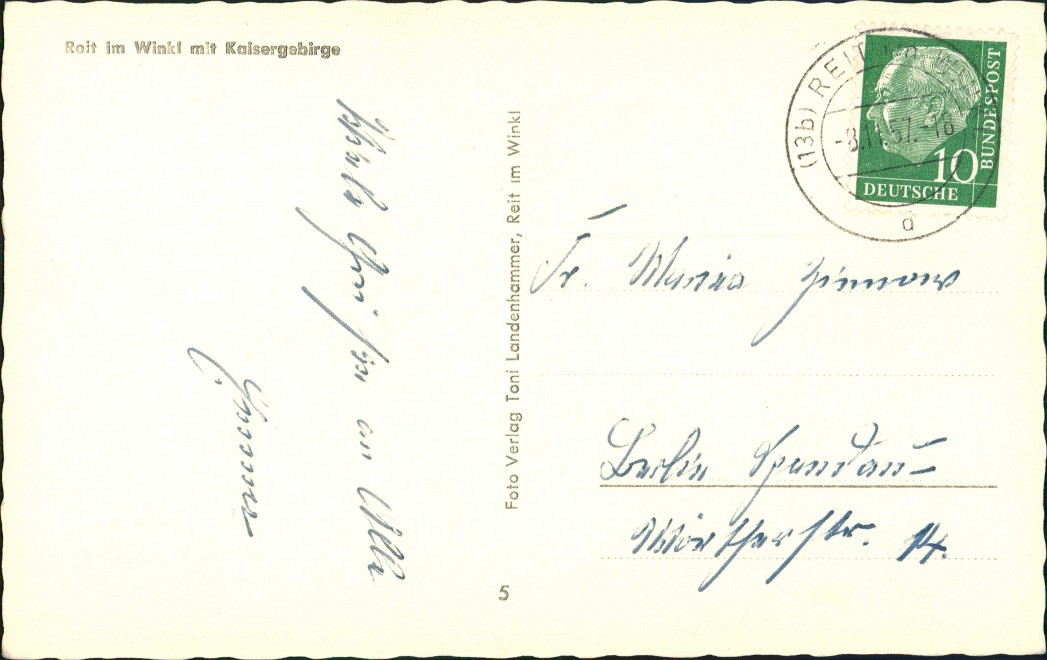 Reit im Winkl mit Kaisergebirge
Viele Grüße an Alle
Foto Verlag Toni Landenhammer, Reit im Winkl
5
(13b) REIT
-8.11.57.-18
a
10
DEUTSCHE
BUNDESPOST
Fr. Maria Zinnow
Berlin Spandau-
Wörtherstr. 14.